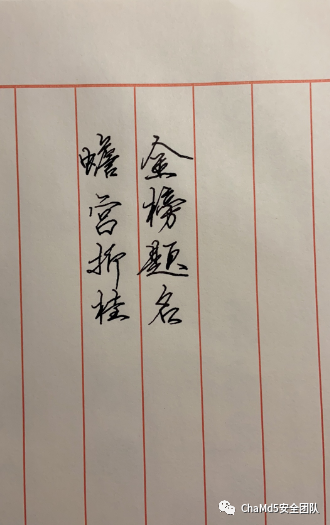 金榜题名
蟾宫折桂
ChaMd5安全团队